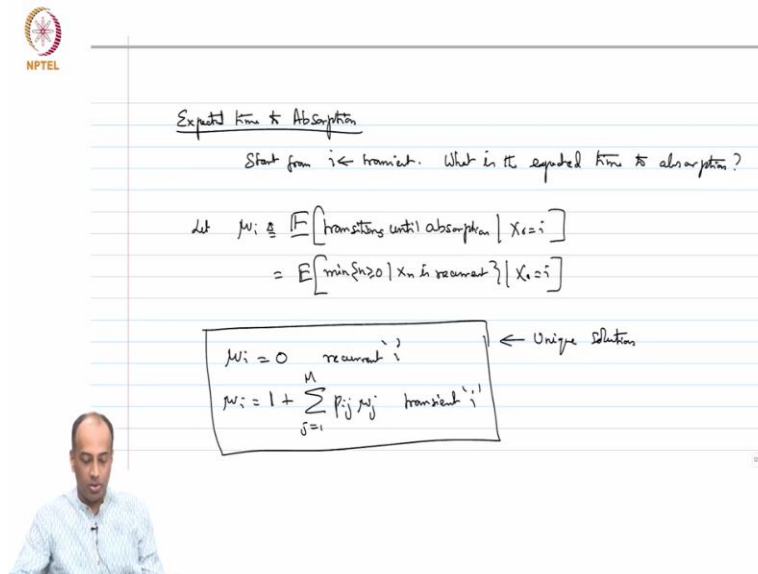 NPTEL
Expected time to Absorption
Start from i ← transient. What is the expected time to absorption?
Let μi ≜ E[transitions until absorption | X₀=i]
= E[min{n≥0 | Xn is recurrent} | X₀=i]
μi = 0 recurrent 'i' ← Unique solution
μi = 1 + Σ_{j=1}^{M} Pij μj transient 'i'